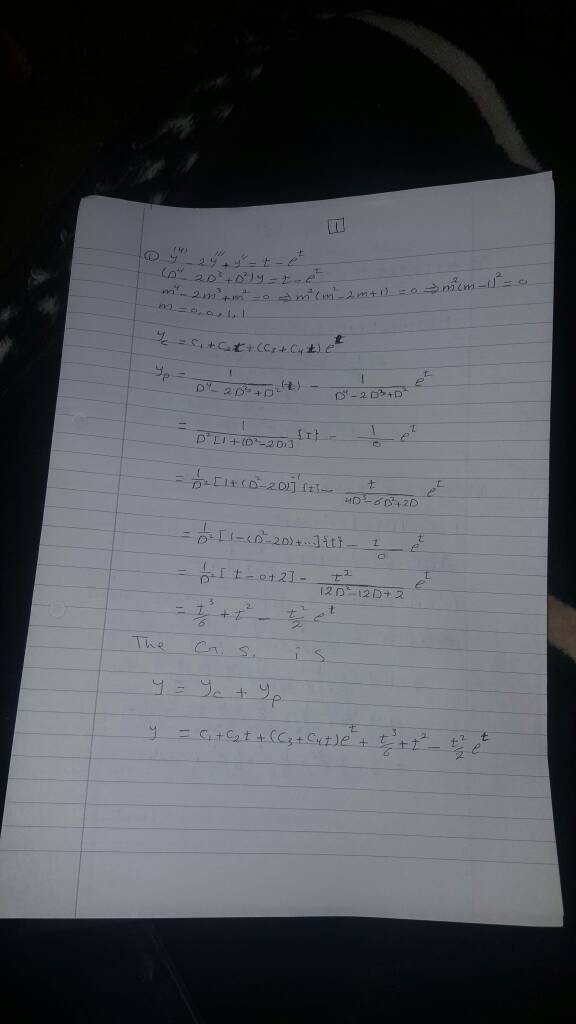 1
① y⁽⁴⁾ - 2y''' + y'' = t - e^t
(D⁴ - 2D³ + D²) y = t - e^t
m⁴ - 2m³ + m² = 0 ⇒ m²(m² - 2m + 1) = 0 ⇒ m²(m - 1)² = 0
m = 0, 0, 1, 1
y_c = c₁ + c₂t + (c₃ + c₄t) e^t
y_p = 1/(D⁴ - 2D³ + D²) (t) - 1/(D⁴ - 2D³ + D²) e^t
= 1/(D²[1 + (D² - 2D)]) {t} - 1/0 e^t
= 1/D² [1 + (D² - 2D)]⁻¹ {t} - t/(4D³ - 6D² + 2D) e^t
= 1/D² [1 - (D² - 2D) + ...] {t} - t/0 e^t
= 1/D² [t - 0 + 2] - t²/(12D² - 12D + 2) e^t
= t³/6 + t² - t²/2 e^t
The G. S. is
y = y_c + y_p
y = c₁ + c₂t + (c₃ + c₄t) e^t + t³/6 + t² - t²/2 e^t